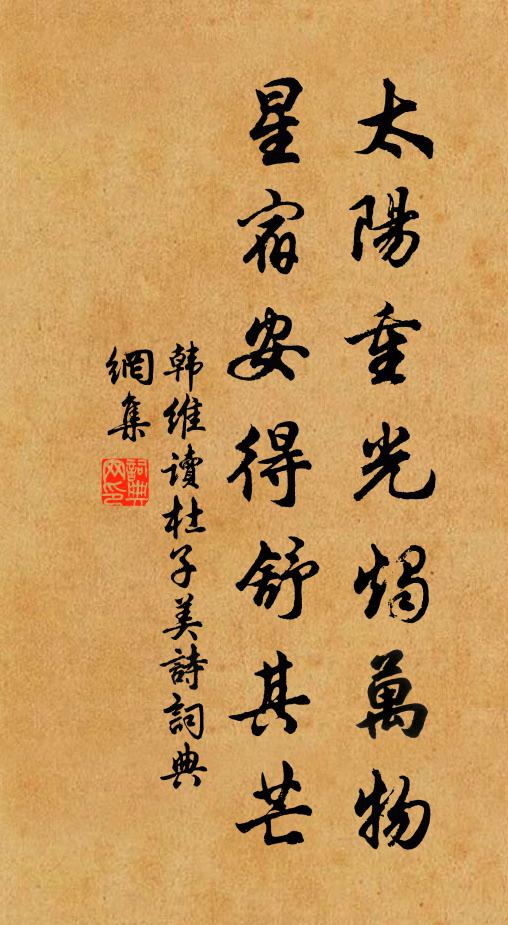 太陽重光燭萬物
星宿安得舒其芒
韩維讀杜子美詩詞典
網集
詞典
网印